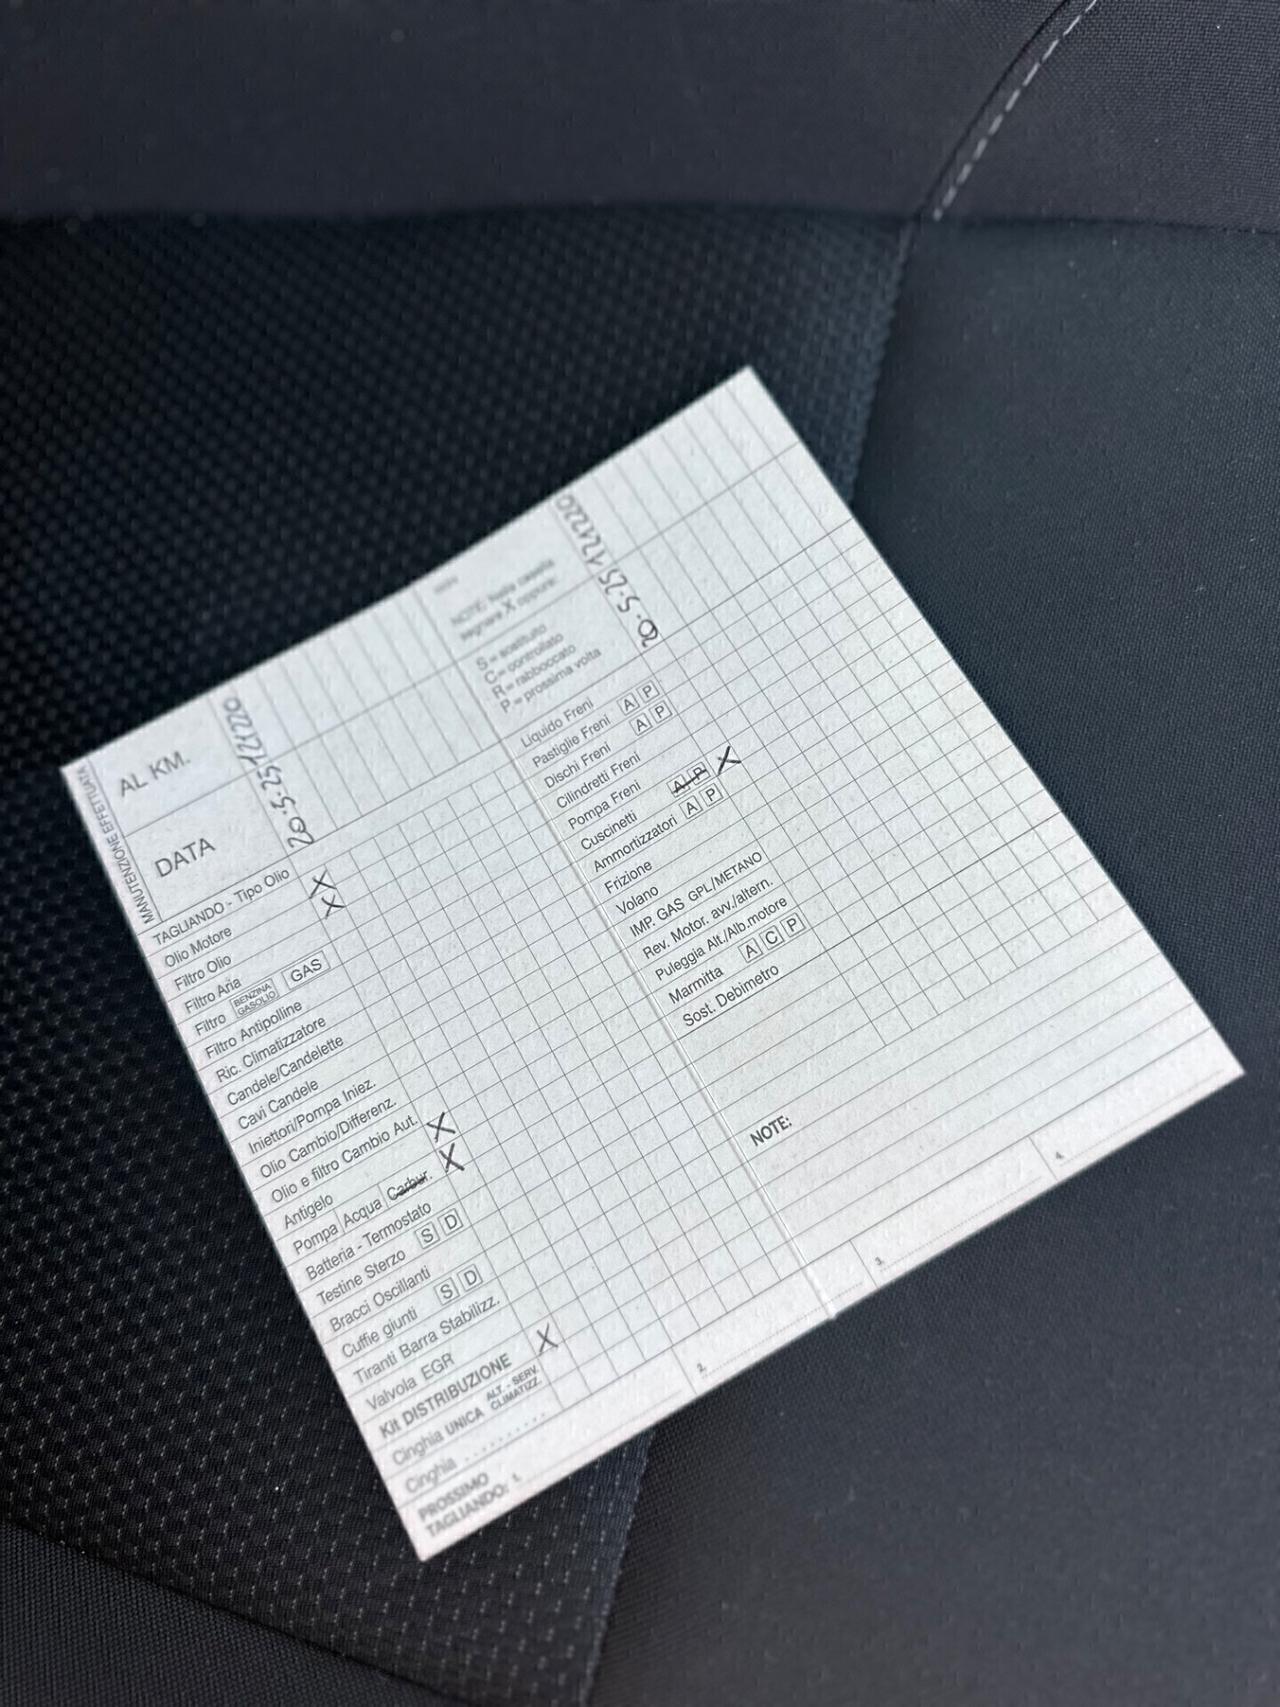 MANUTENZIONE EFFETTUATA
AL KM.
121220
DATA
20.5.25
TAGLIANDO - Tipo Olio
Olio Motore X
Filtro Olio X
Filtro Aria
Filtro BENZINA GASOLIO GAS
Filtro Antipolline
Ric. Climatizzatore
Candele/Candelette
Cavi Candele
Iniettori/Pompa Iniez.
Olio Cambio/Differenz.
Olio e filtro Cambio Aut.
Antigelo X
Pompa Acqua Carbur. X
Batteria - Termostato
Testine Sterzo S D
Bracci Oscillanti
Cuffie giunti S D
Tiranti Barra Stabilizz.
Valvola EGR
Kit DISTRIBUZIONE X
Cinghia UNICA ALT. - SERV. CLIMATIZZ.
Cinghia ..........
PROSSIMO
TAGLIANDO: 1.
2.
3.
4.
NOTE: Nelle caselle
segnare X oppure:
S = sostituito
C = controllato
R = rabboccato
P = prossima volta
121220
20.5.25
Liquido Freni
Pastiglie Freni A P
Dischi Freni A P
Cilindretti Freni
Pompa Freni
Cuscinetti A P X
Ammortizzatori A P
Frizione
Volano
IMP. GAS GPL/METANO
Rev. Motor. avv./altern.
Puleggia Alt./Alb.motore
Marmitta A C P
Sost. Debimetro
NOTE: